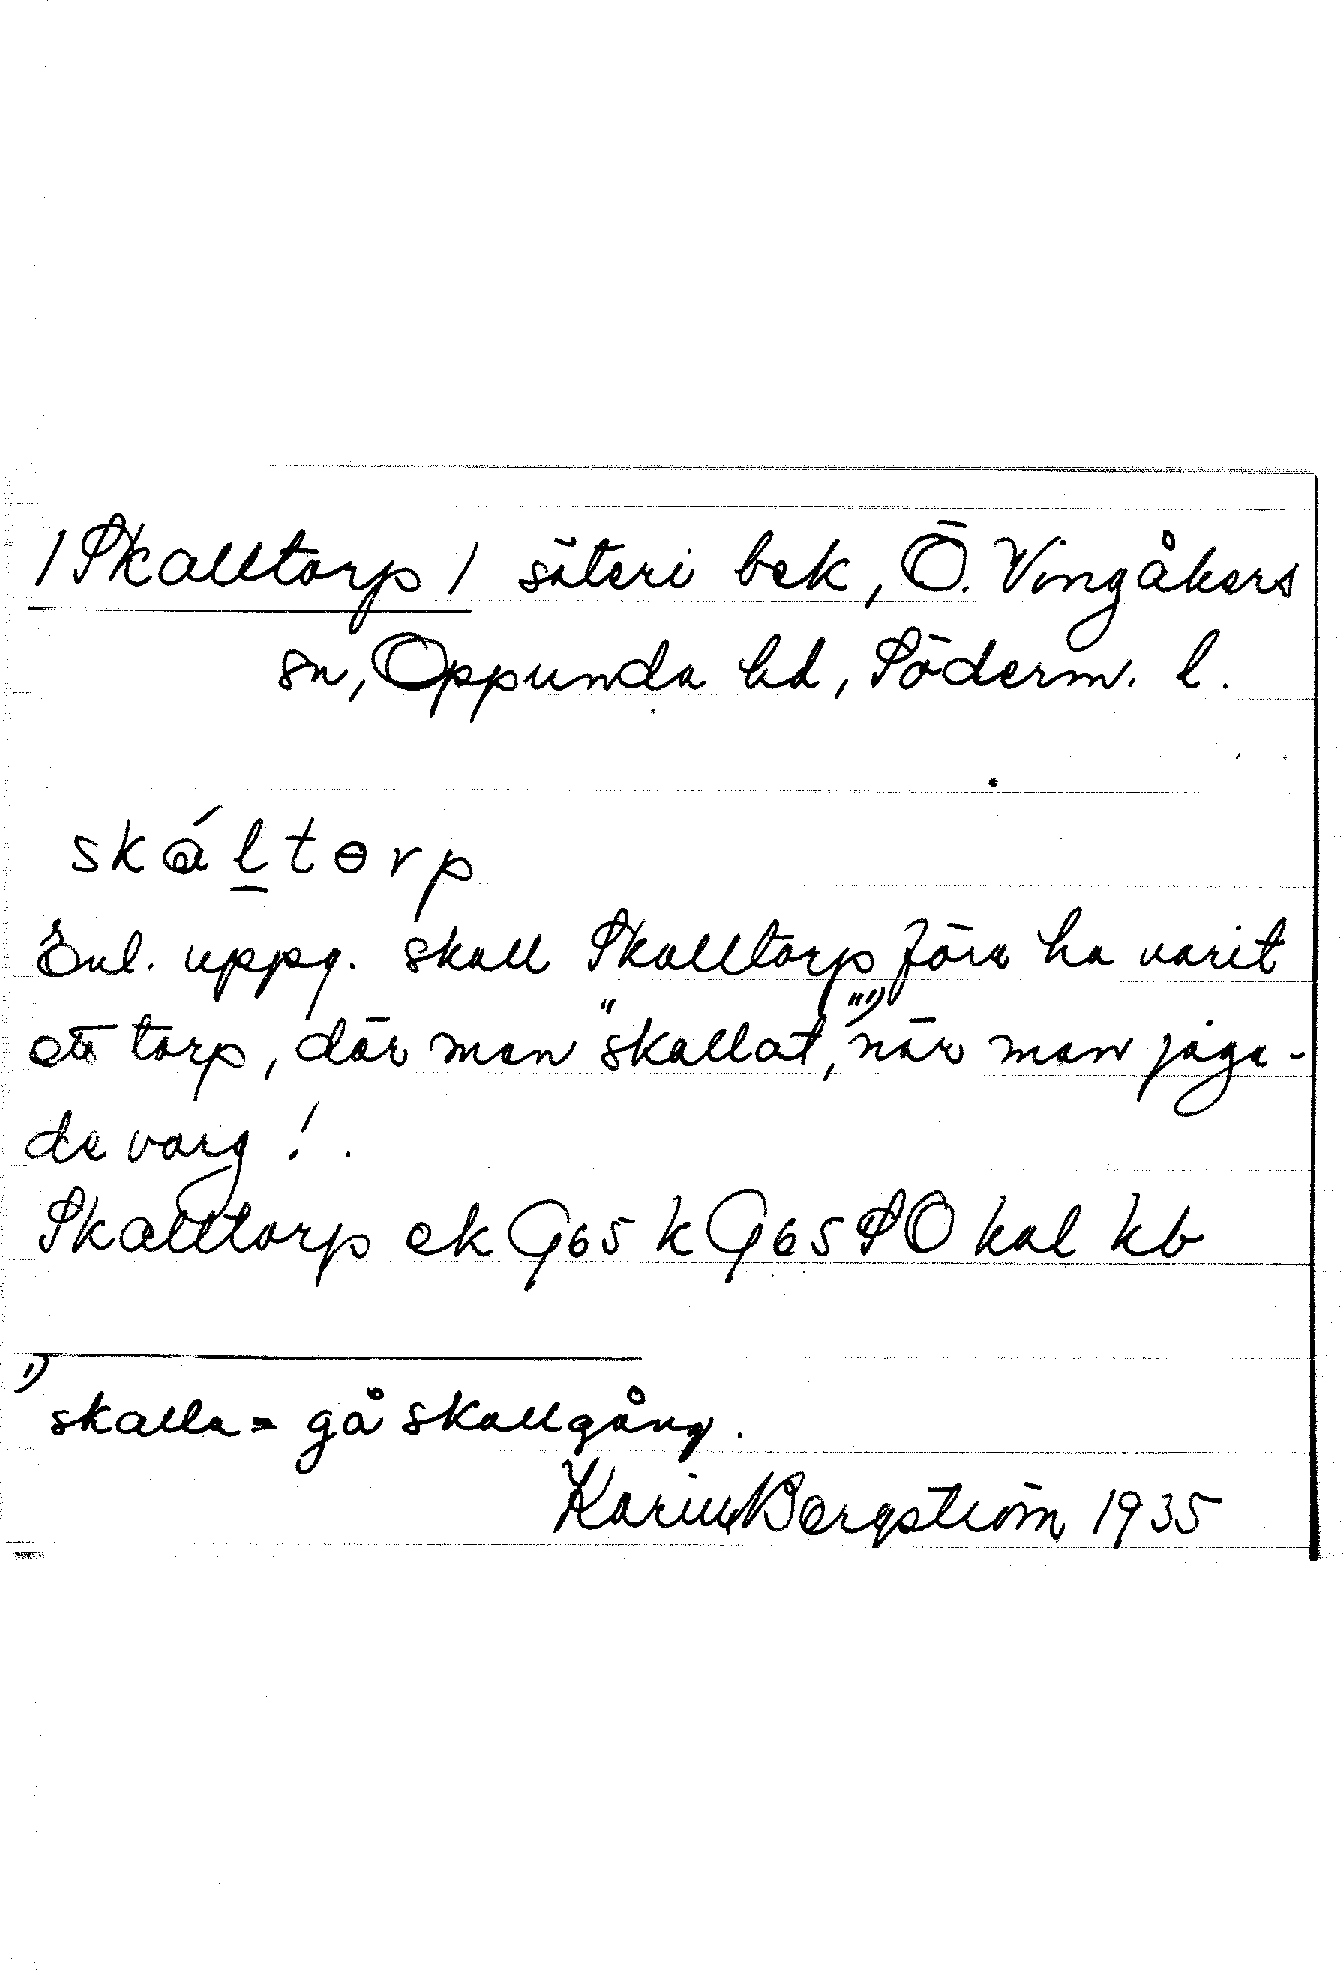 /Skalltorp/ säteri bek, Ö. Vingåkers
sn, Oppunda hd, Söderm. l.
skáltɵrp
Enl. uppg. skall Skalltorp förr ha varit
ett torp, där man "skallat,"¹⁾ när man jaga-
de varg!.
Skalltorp ek G65 k G65 SO kal kb
¹⁾ skalla = gå skallgång.
Karin Bergström 1935